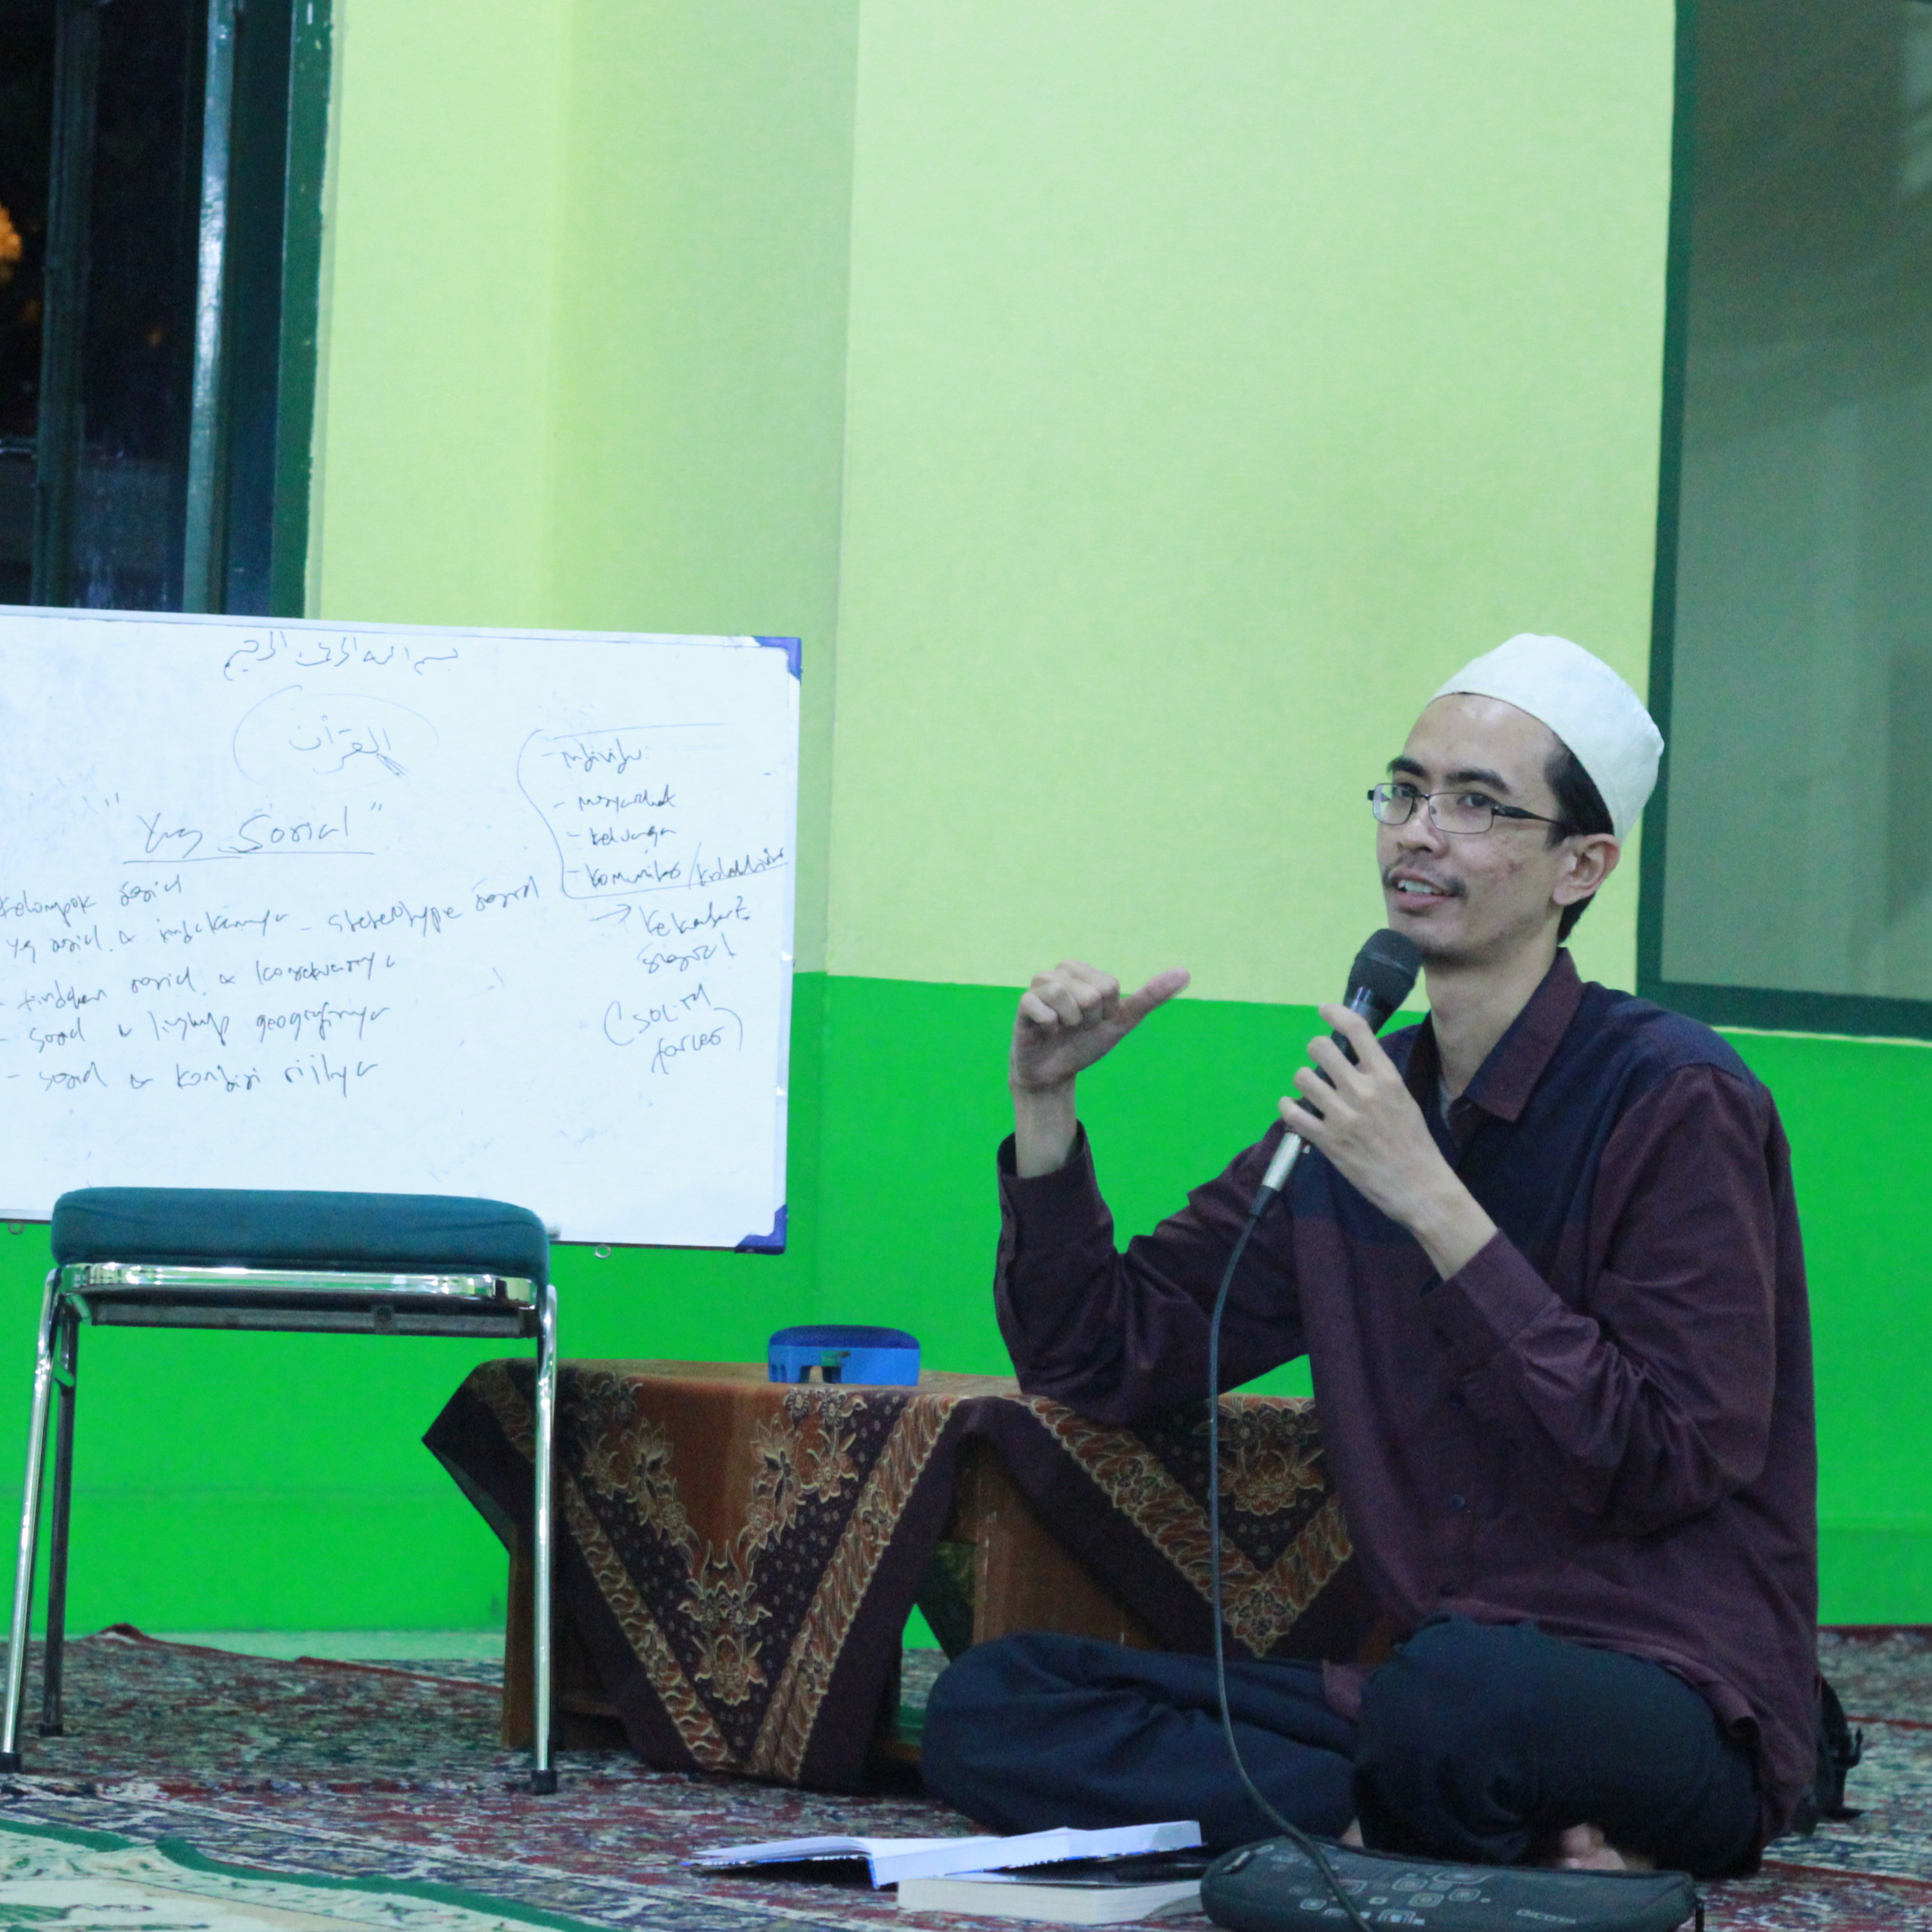 بسم الله الرحمن الرحيم
القرآن
"Yg Sosial"
Kelompok sosial
yg sosial & tindakannya - stereotype sosial
- tindakan sosial & konsekuensinya
- sosial & lingkup geografinya
- sosial & kondisi riilnya
- individu
- masyarakat
- keluarga
- komunitas / kolektivitas
→ sosial
(SOLID
forces)